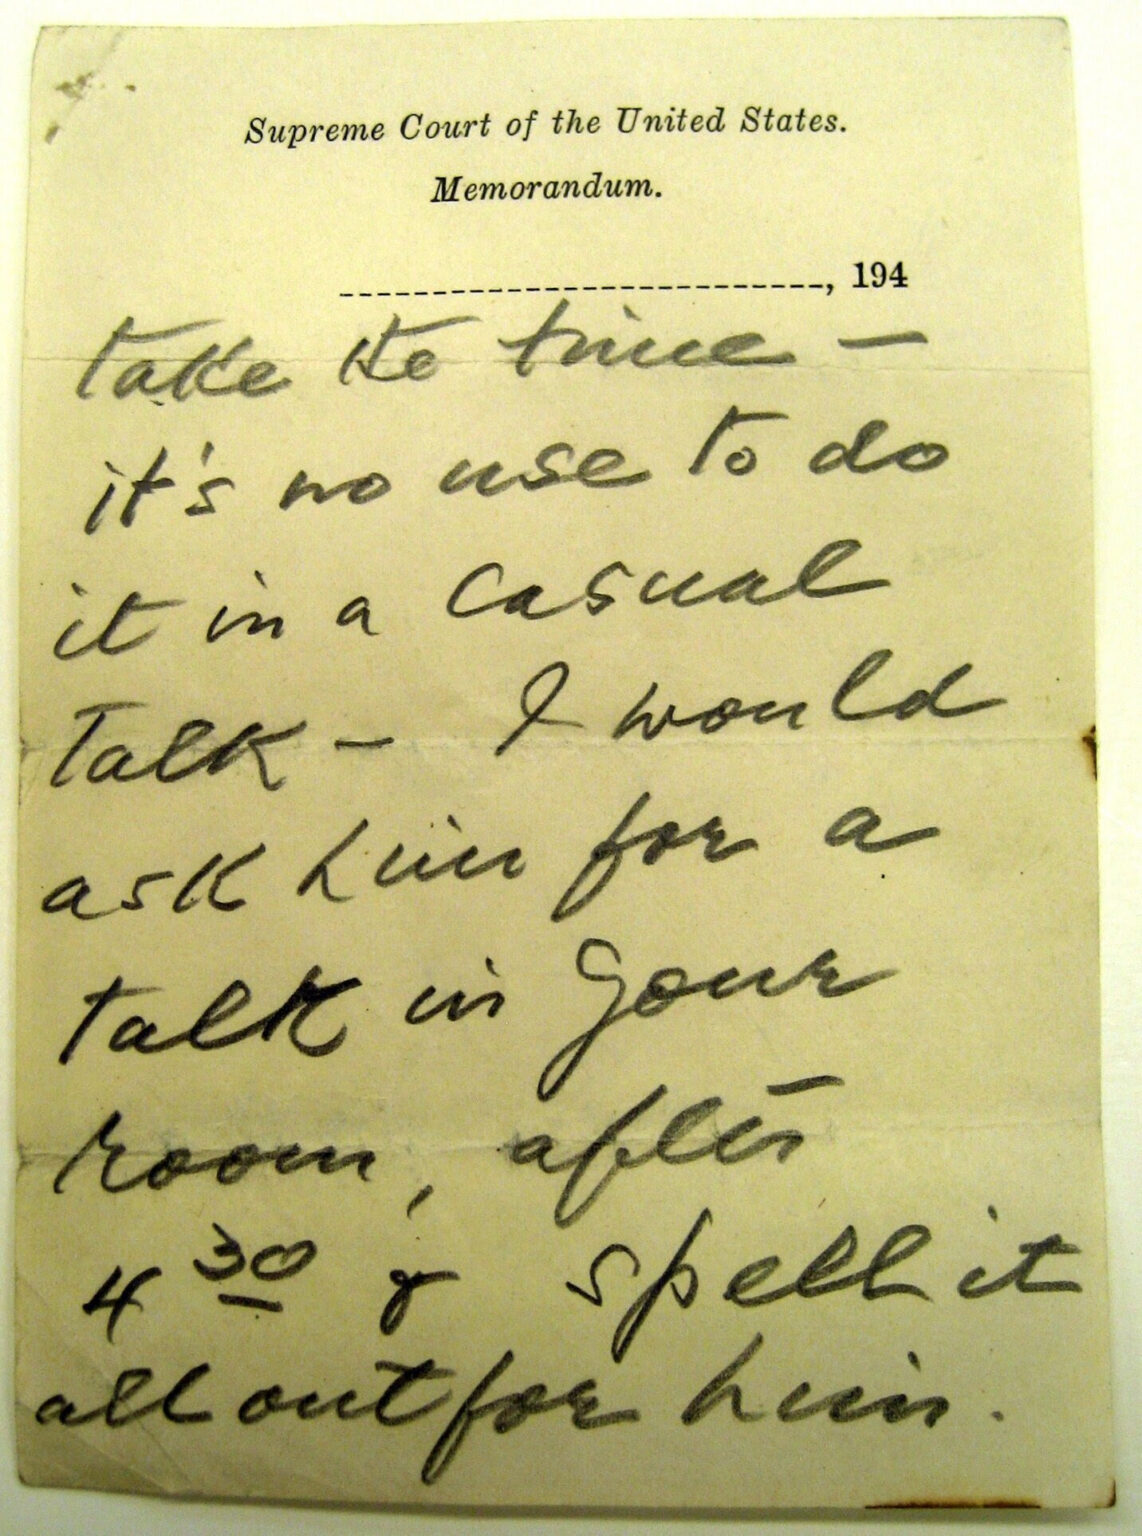 Supreme Court of the United States.
Memorandum.
, 194
take the time —
it's no use to do
it in a casual
talk — I would
ask him for a
talk in your
room, after
4 30 & spell it
all out for him.